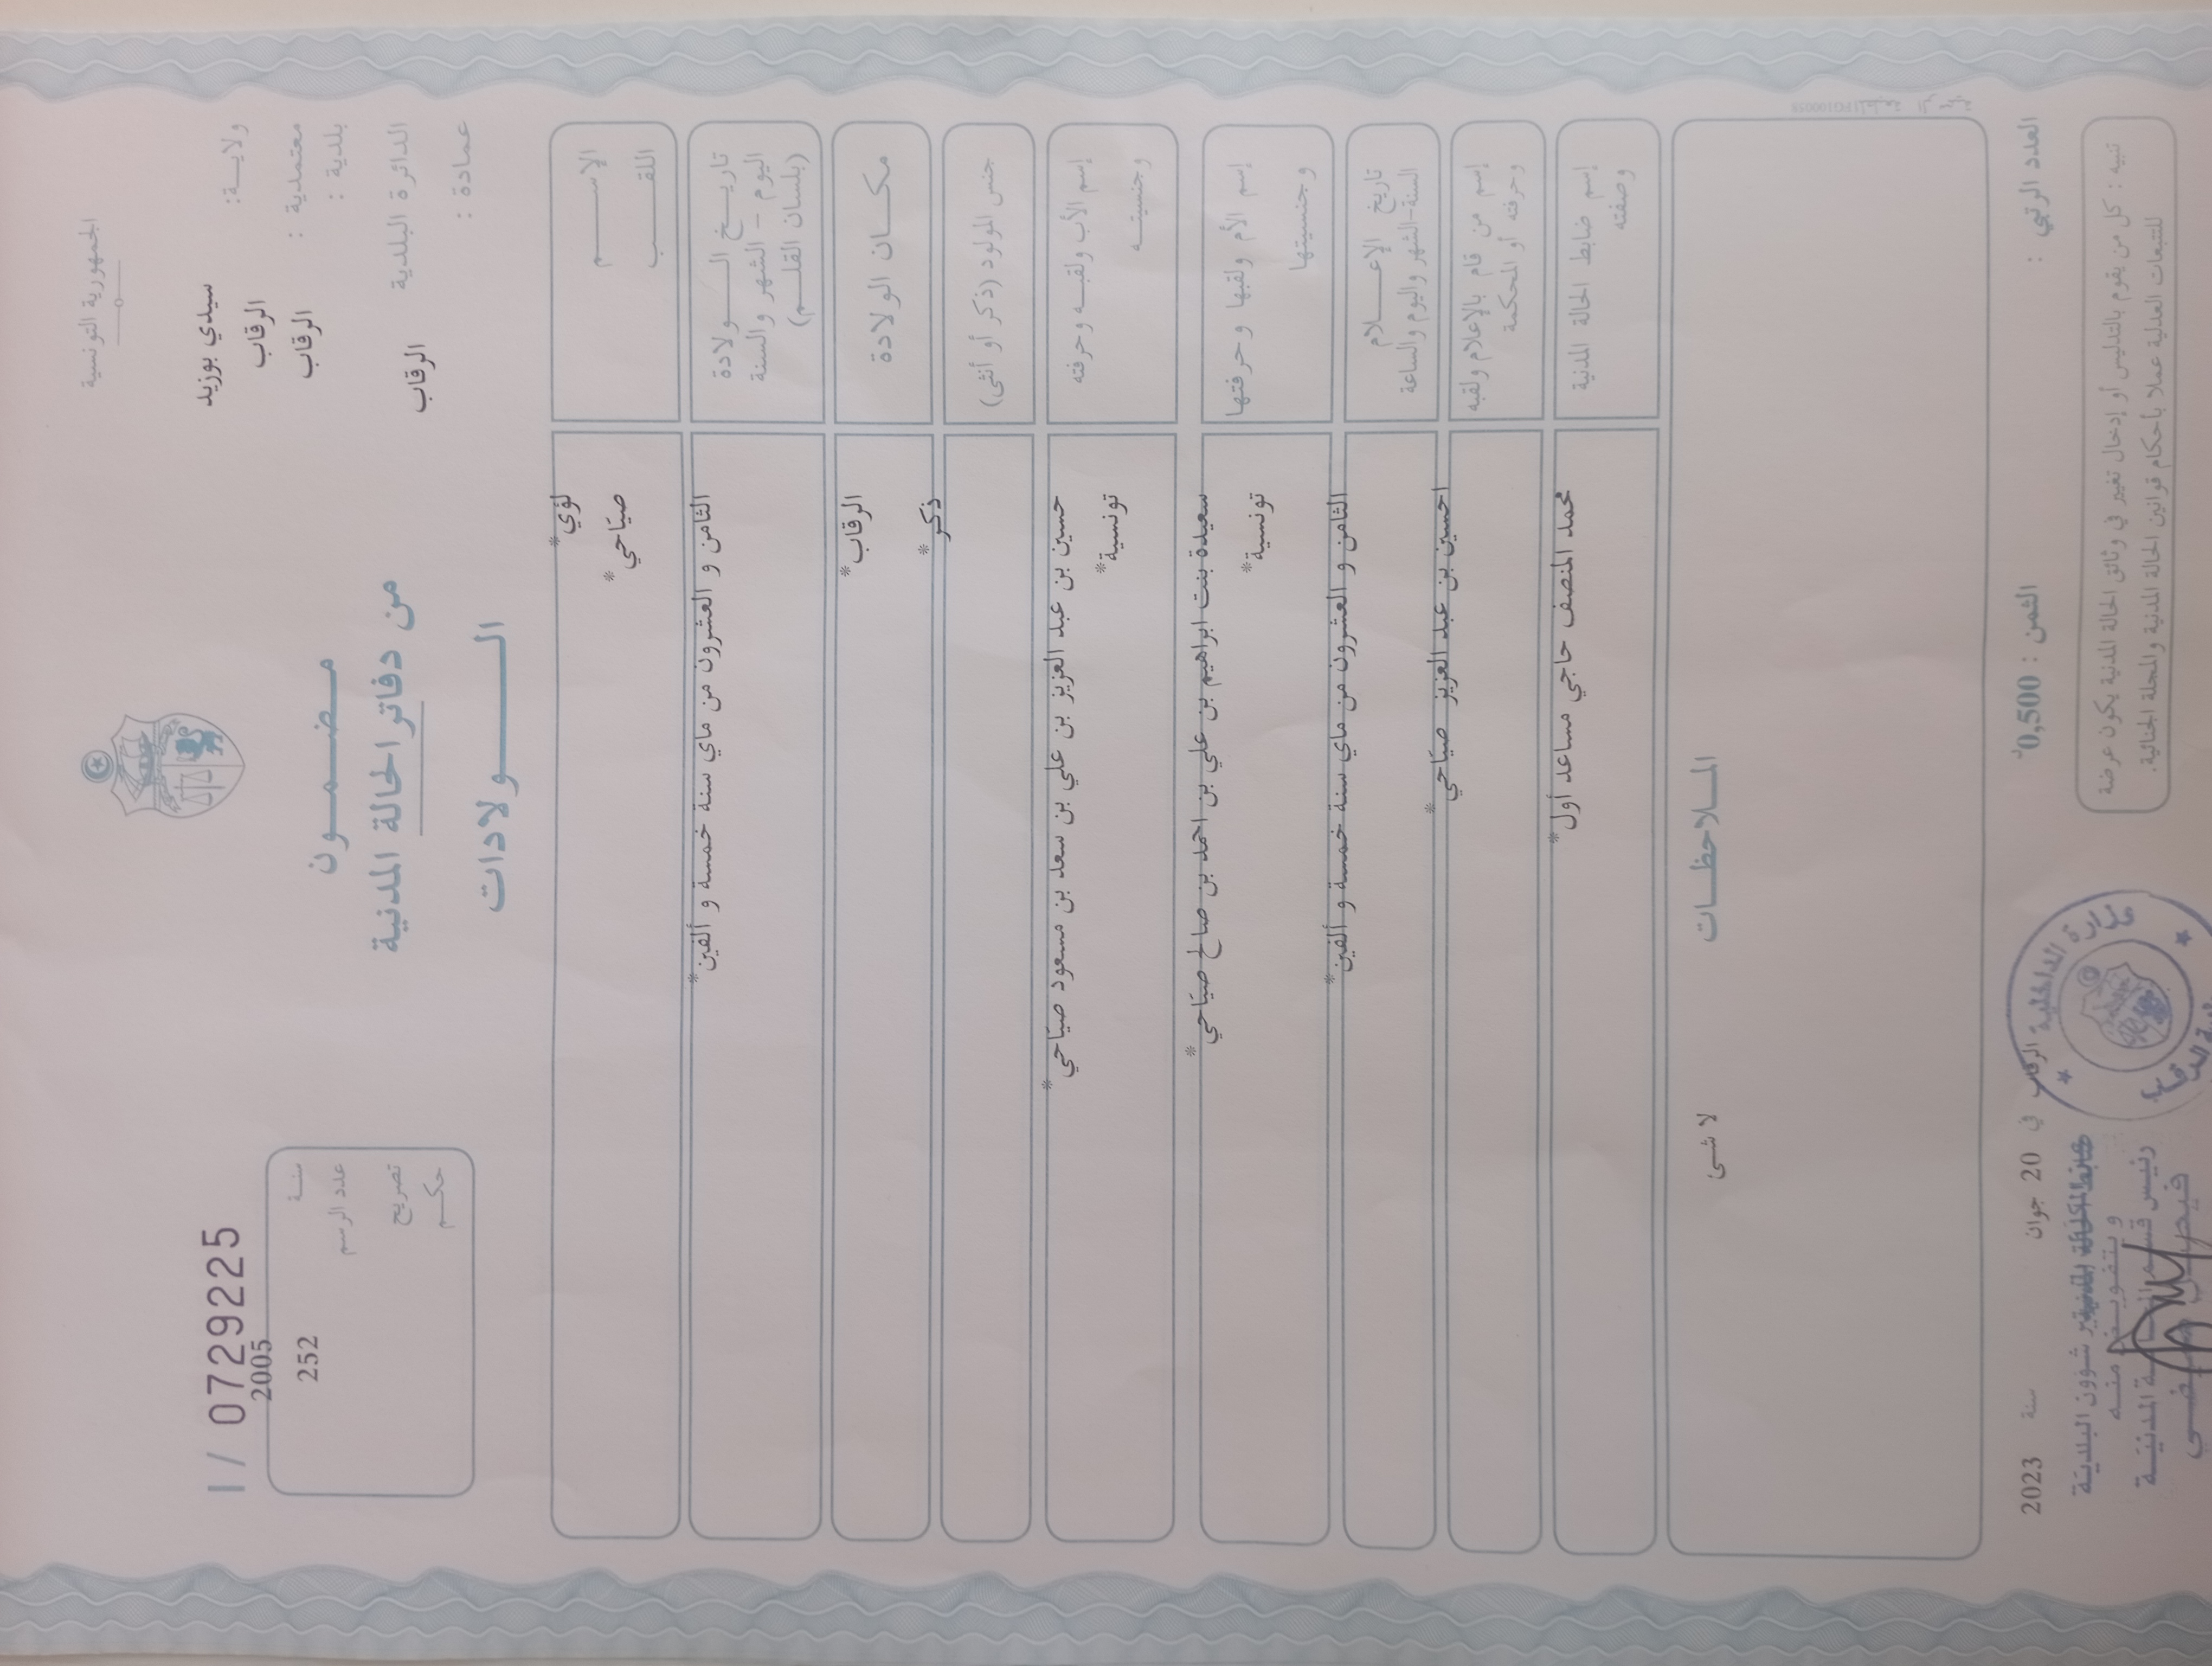 الجمهورية التونسية
ولايـــة: سيدي بوزيد
معتمدية : الرقاب
بلدية : الرقاب
الدائرة البلدية الرقاب
عمادة :
مـضـمــون
من دفاتر الحالة المدنية
الـــــولادات
I / 0729225
سنـة 2005
عدد الرسم 252
تصريح
حكـم
الإســـــم لؤي*
اللقـــــب صيّاحي*
تاريــخ الـــــولادة
اليوم - الشهر والسنة
(بلسان القلـــم)
الثامن و العشرون من ماي سنة خمسة و ألفين*
مكـــان الولادة الرقاب*
جنس المولود (ذكر أو أنثى) ذكر*
إسم الأب ولقبـه وحرفته حسين بن عبد العزيز بن علي بن سعد بن مسعود صيّاحي*
وجنسيتــه تونسية*
إسم الأم ولقبها وحرفتها سعيدة بنت ابراهيم بن علي بن احمد بن صالح صيّاحي*
وجنسيتها تونسية*
تاريخ الإعـــلام
السنة-الشهر واليوم والساعة
الثامن و العشرون من ماي سنة خمسة و ألفين*
إسم من قام بالإعلام ولقبه
وحرفته أو المحكمة
احسين بن عبد العزيز صيّاحي*
إسم ضابط الحالة المدنية
وصفته
محمد المنصف حاجي مساعد أول*
المــلاحظـــات
لا شئ
العدد الرتبي :
الثمن : 0,500د
الرقاب في 20 جوان سنة 2023
تنبيه : كل من يقوم بالتدليس أو إدخال تغيير في وثائق الحالة المدنية يكون عرضة
للتتبعات العدلية عملا بأحكام قوانين الحالة المدنية والمجلة الجنائية.
وزارة الداخلية
شؤون البلدية
وبتفويض منه
رئيس قسم الحالة المدنية